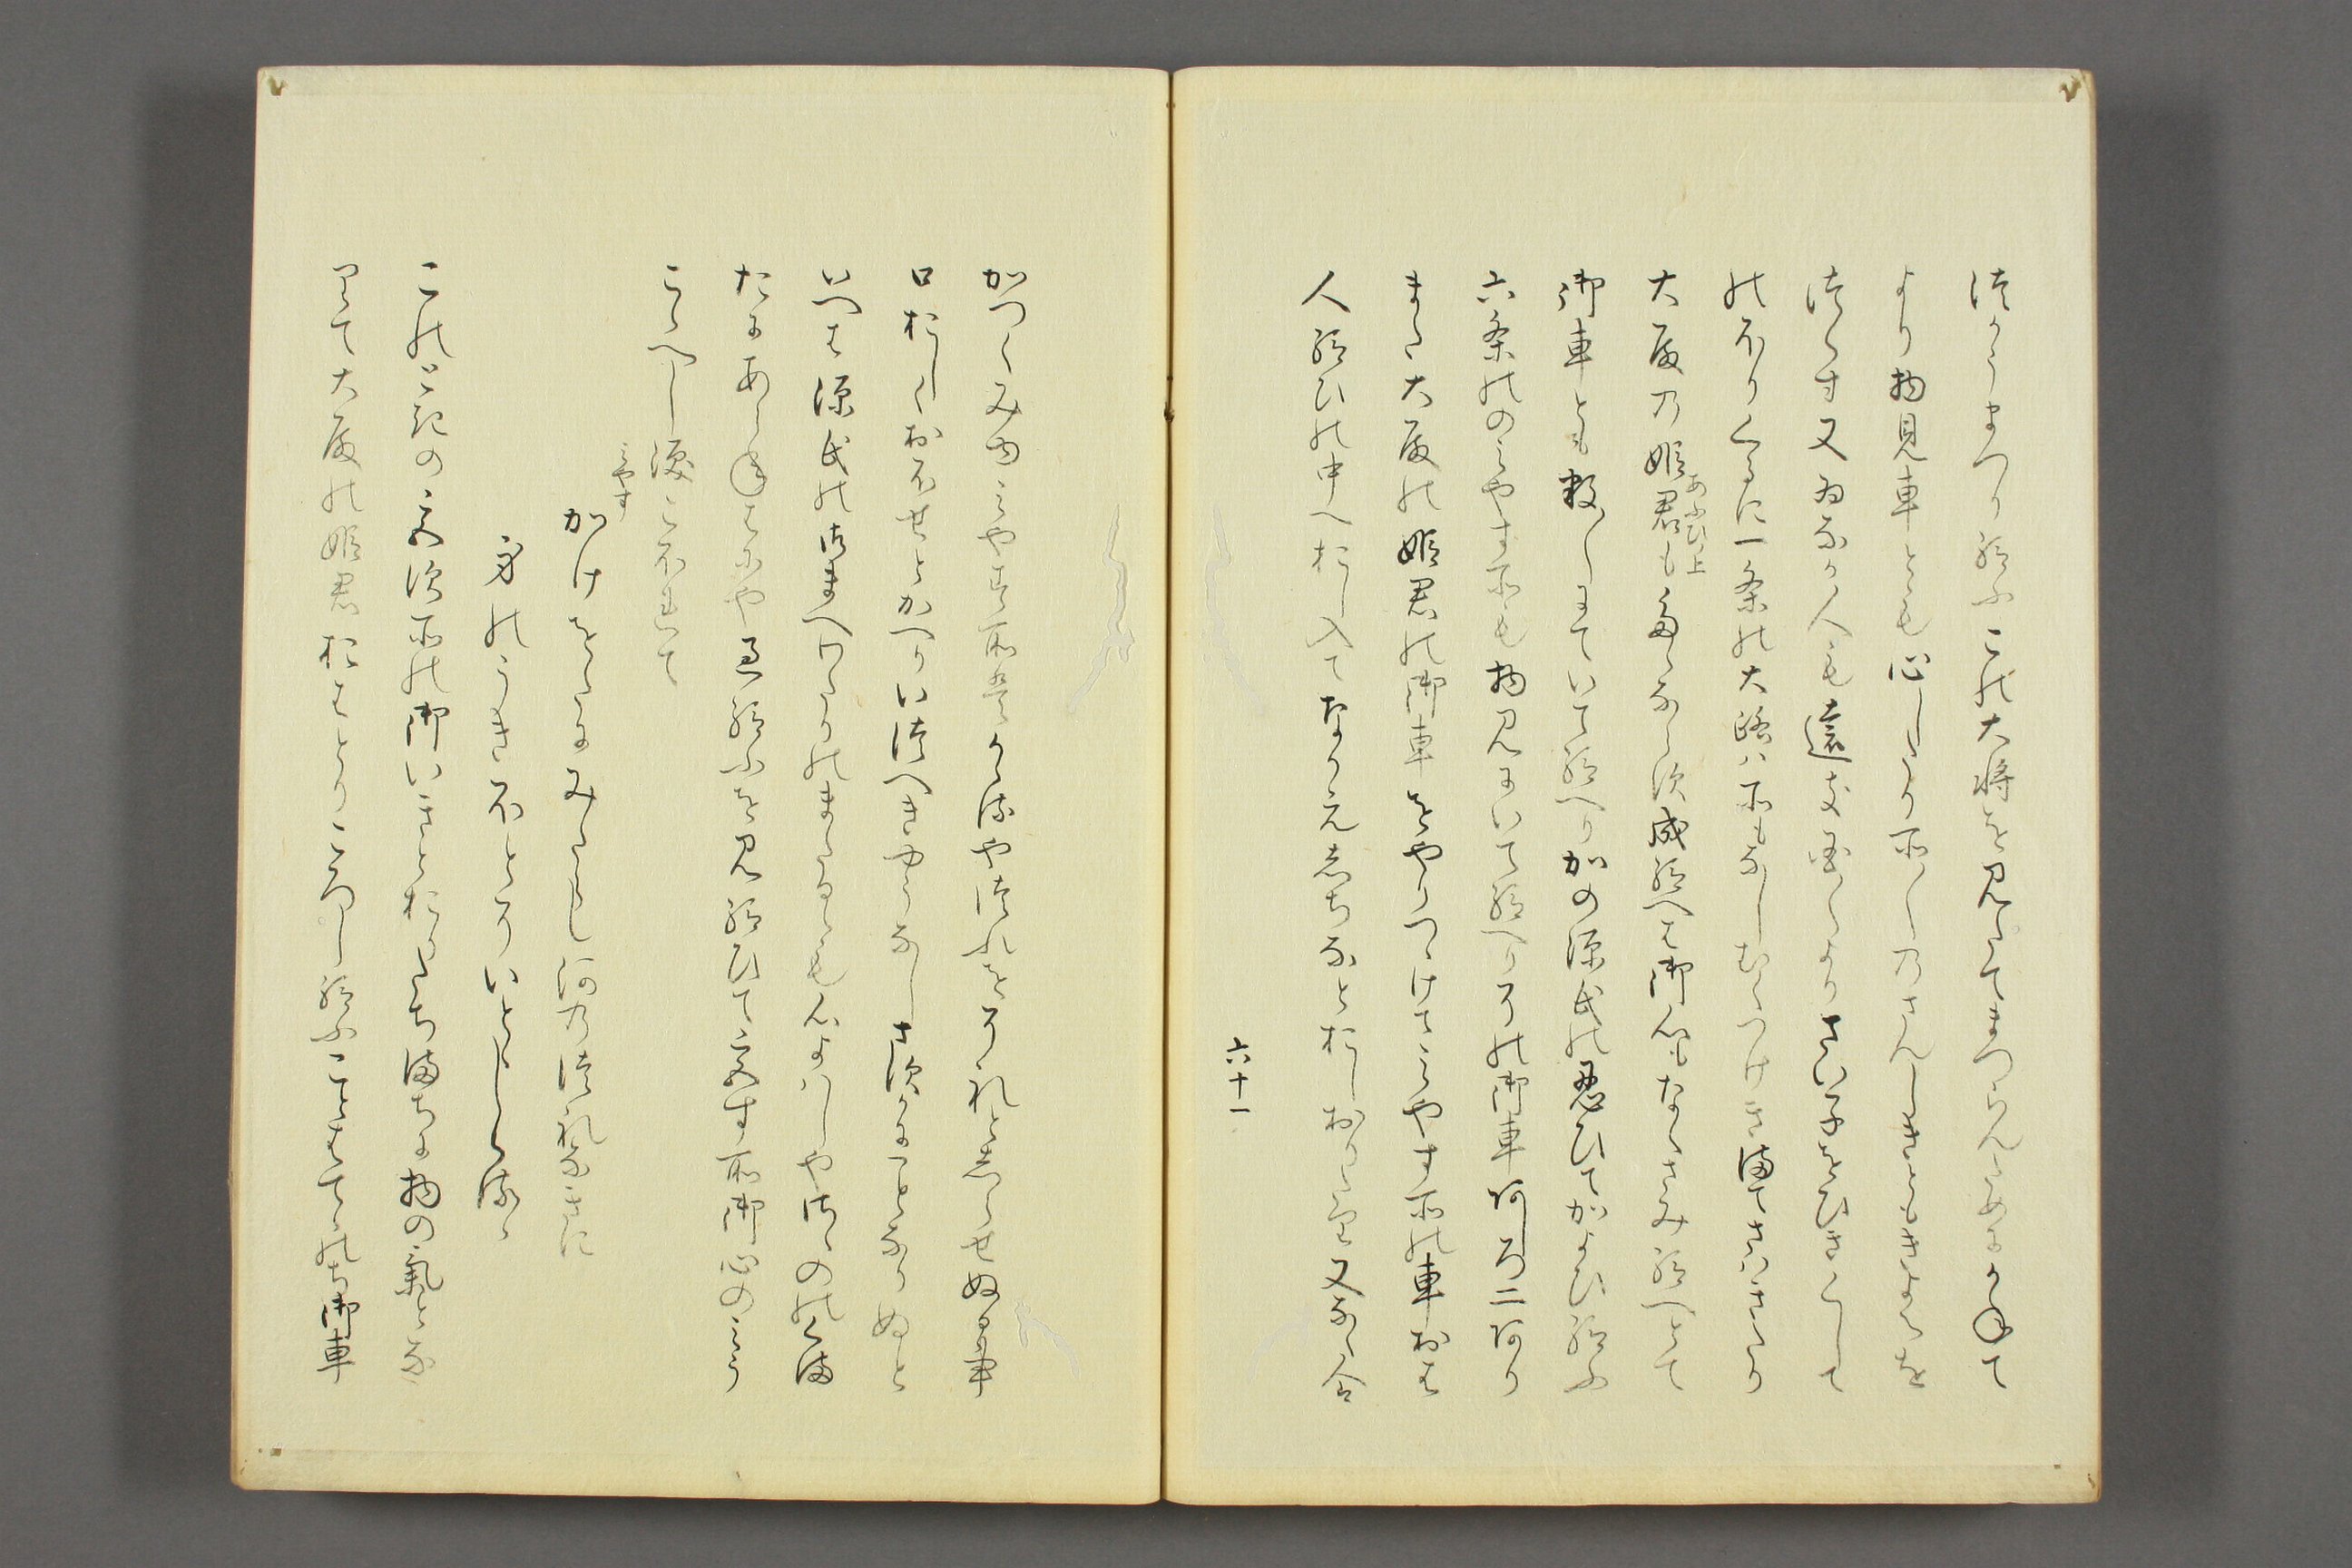 つかうまつり給ふこの大将を見たてまつらんためにかねて
より物見車とも心したり所々のさんしきともきよらを
つくす又ゐなか人も遠き国々よりさい子をひきくして
のほりくるに一条の大路は所もなしむくつけきまてさはきたり
大殿の姫君も
あふひ上
たゝならす成給へは御心もなくさみ給へとて
御車とも数々にていて給へりかの源氏の忍ひてかよひ給ふ
六条のみやす所も物見にいて給へりその御車あしろ二あり
また大殿の姫君の御車をやりつゝけてみやす所の車おは
人給ひの中へおし入てなかえしちなとおしおりたり又なく人
六十一
かつらみゆみやす所はかゝるやつれをそれとしらせぬる事
口おしくおほせとかへりいつへきやうなしさすかにことなりぬと
いへは源氏の御まへわたりのまたるゝも心よはしやつゝのくま
たにあらねはにや過給ふを見給ひて みやす所御心のうち
こゝへし涙こほれて
みやす
かけをのみみたらし河のつれなきに
身のうきほとそいとゝしらるゝ
このときのみやす所の御いきとおりたちまちに物の気とな
りて大殿の姫君おはとりころし給ふことはてゝのち御車